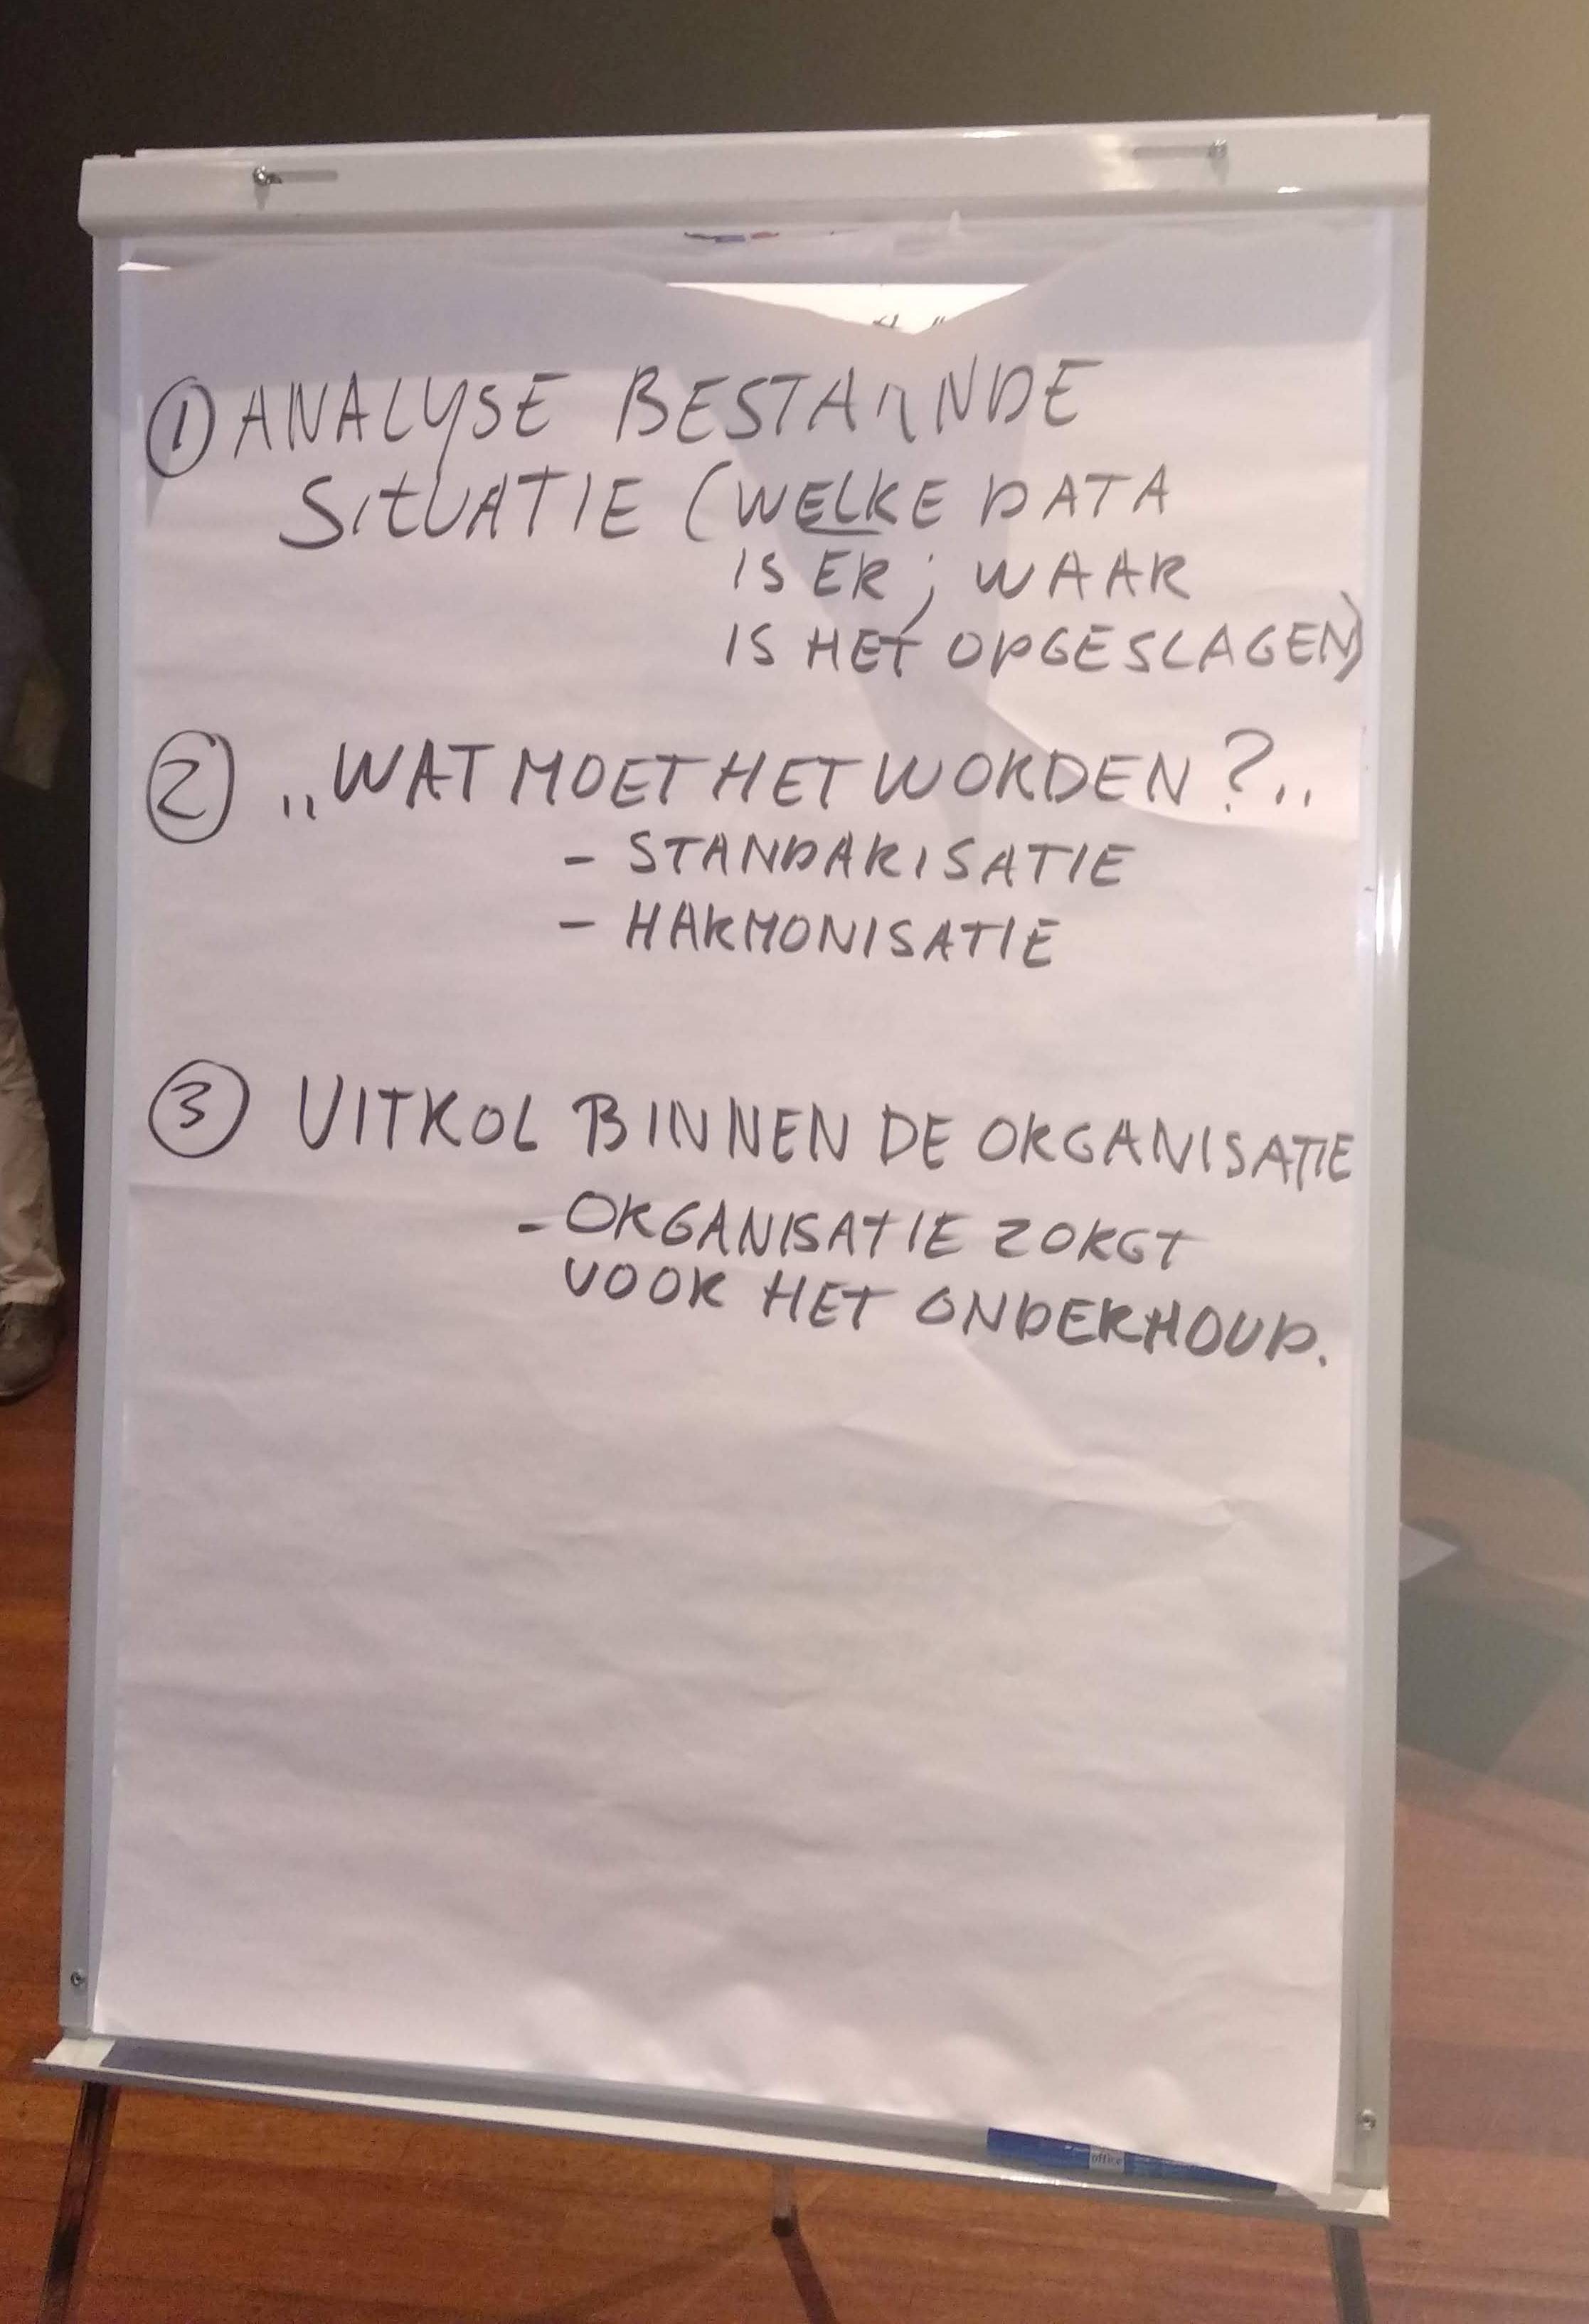 ① ANALYSE BESTAANDE
SITUATIE (WELKE DATA
IS ER; WAAR
IS HET OPGESLAGEN)
② „WAT MOET HET WORDEN?..
- STANDARISATIE
- HARMONISATIE
③ UITROL BINNEN DE ORGANISATIE
- ORGANISATIE ZORGT
VOOR HET ONDERHOUD.
office